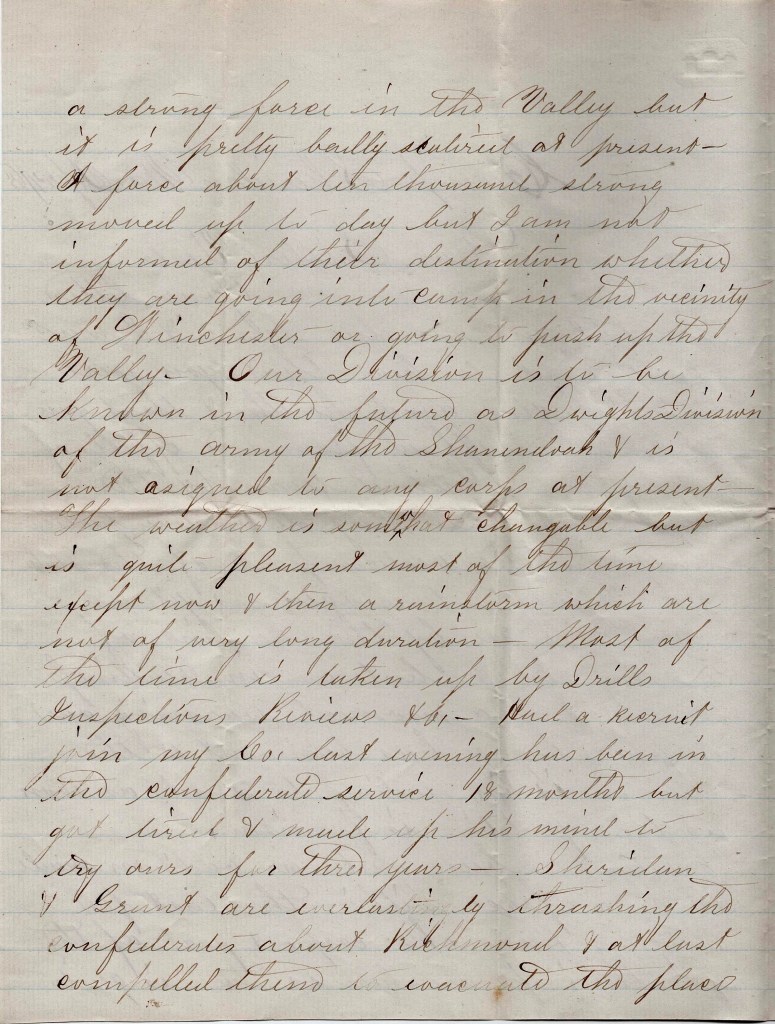 a strong force in the Valley but
it is pretty badly scatired at present—
A force about ten thousand strong
moved up to day but I am not
informed of their destination whether
they are going into camp in the vecinity
of Winchester or going to push up the
Valley— Our Division is to be
known in the future as Dwights Division
of the army of the Shanendoah & is
not asigned to any corps at present—
The weather is somwhat changable but
is quite pleasent most of the time
except now & then a rainstorm which are
not of very long duration— Most of
the time is taken up by Drills
Inspections Reviews &c,— Had a recruit
join my Co, last evening has been in
the confederate service 18 months but
got tired & made up his mind to
try ours for three years— Sheridan
& Grant are everlastingly thrashing the
confederates about Richmond & at last
compelled them to evacuate the place